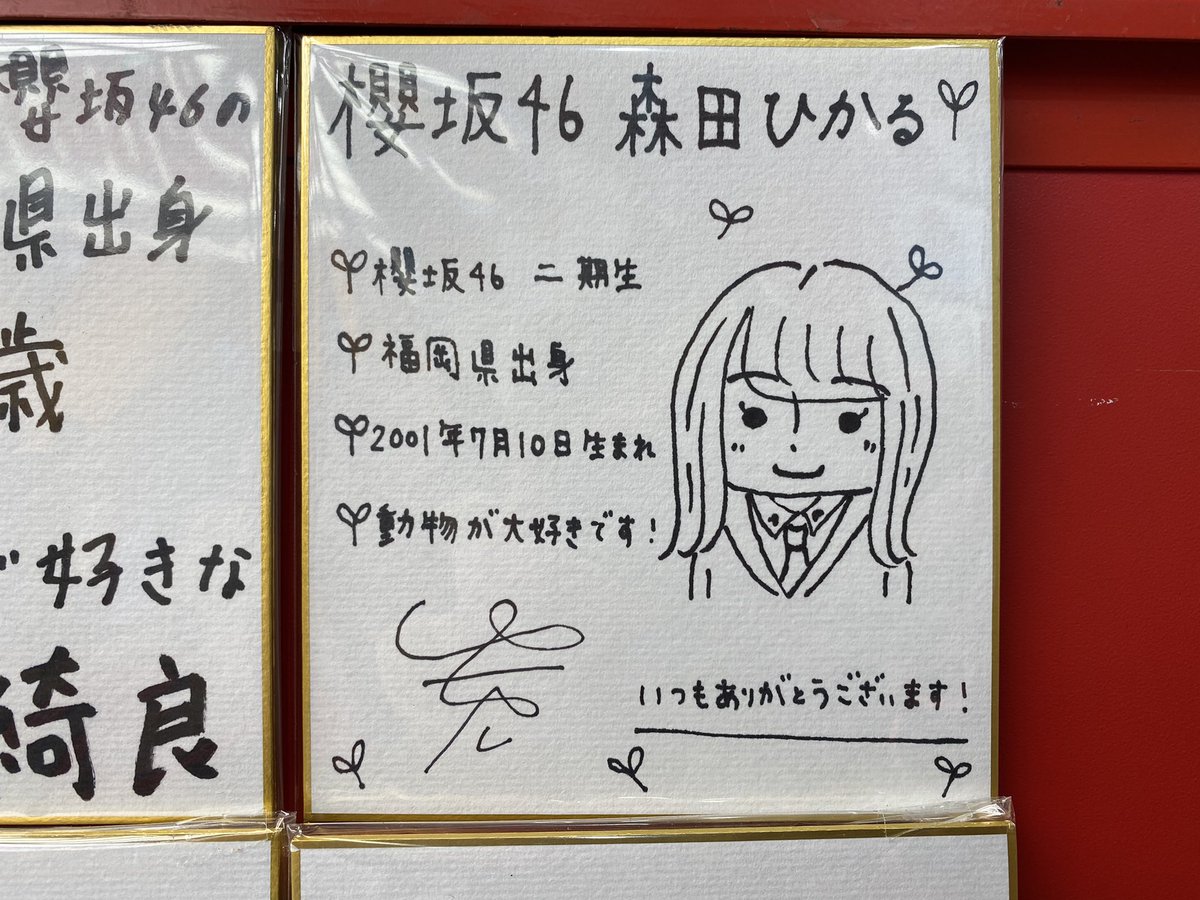 櫻坂46の
県出身
歳
好きな
綺良
櫻坂46 森田ひかる
櫻坂46 二期生
福岡県出身
2001年7月10日生まれ
動物が大好きです!
いつもありがとうございます!